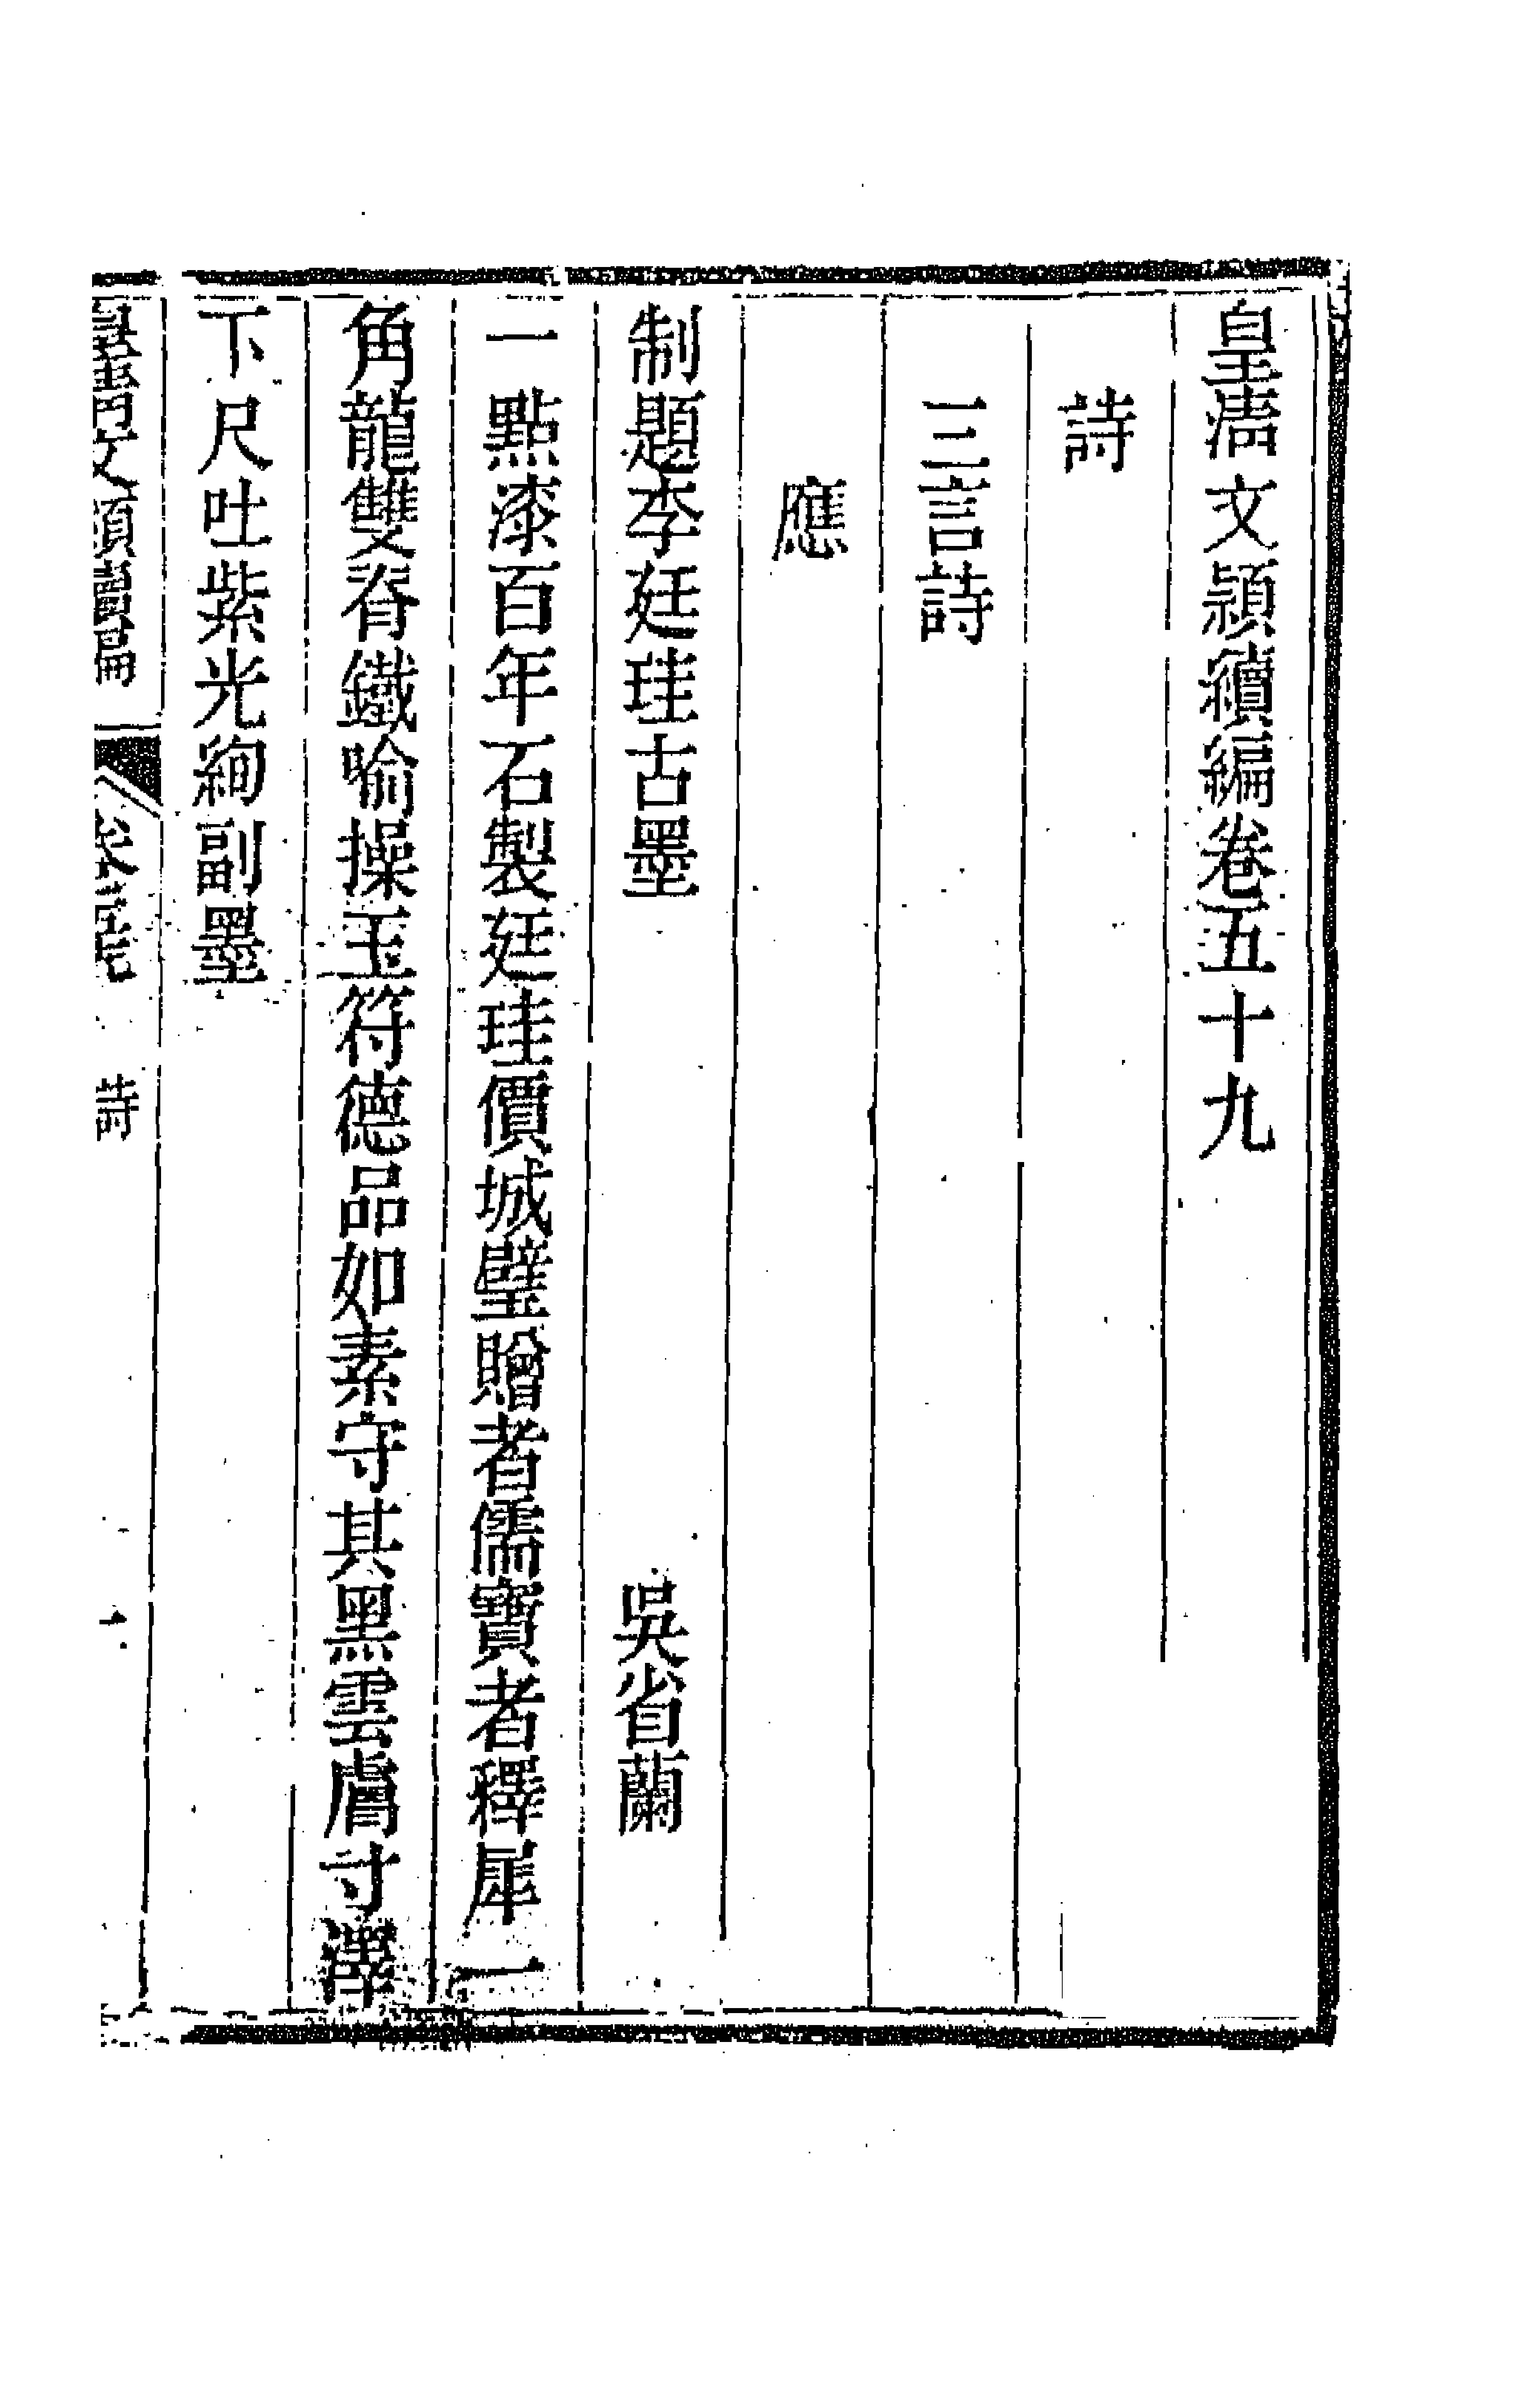 皇清文潁續編卷五十九
詩
三言詩
應
制題李廷珪古墨
吳省蘭
一點漆百年石製廷珪價城璧贈者儒寶者釋犀一
角龍雙脊鐵喻操玉符德品如素守其黑雲膚寸澤
下尺吐紫光絢副墨
皇清文潁續編
卷五十九
詩
一